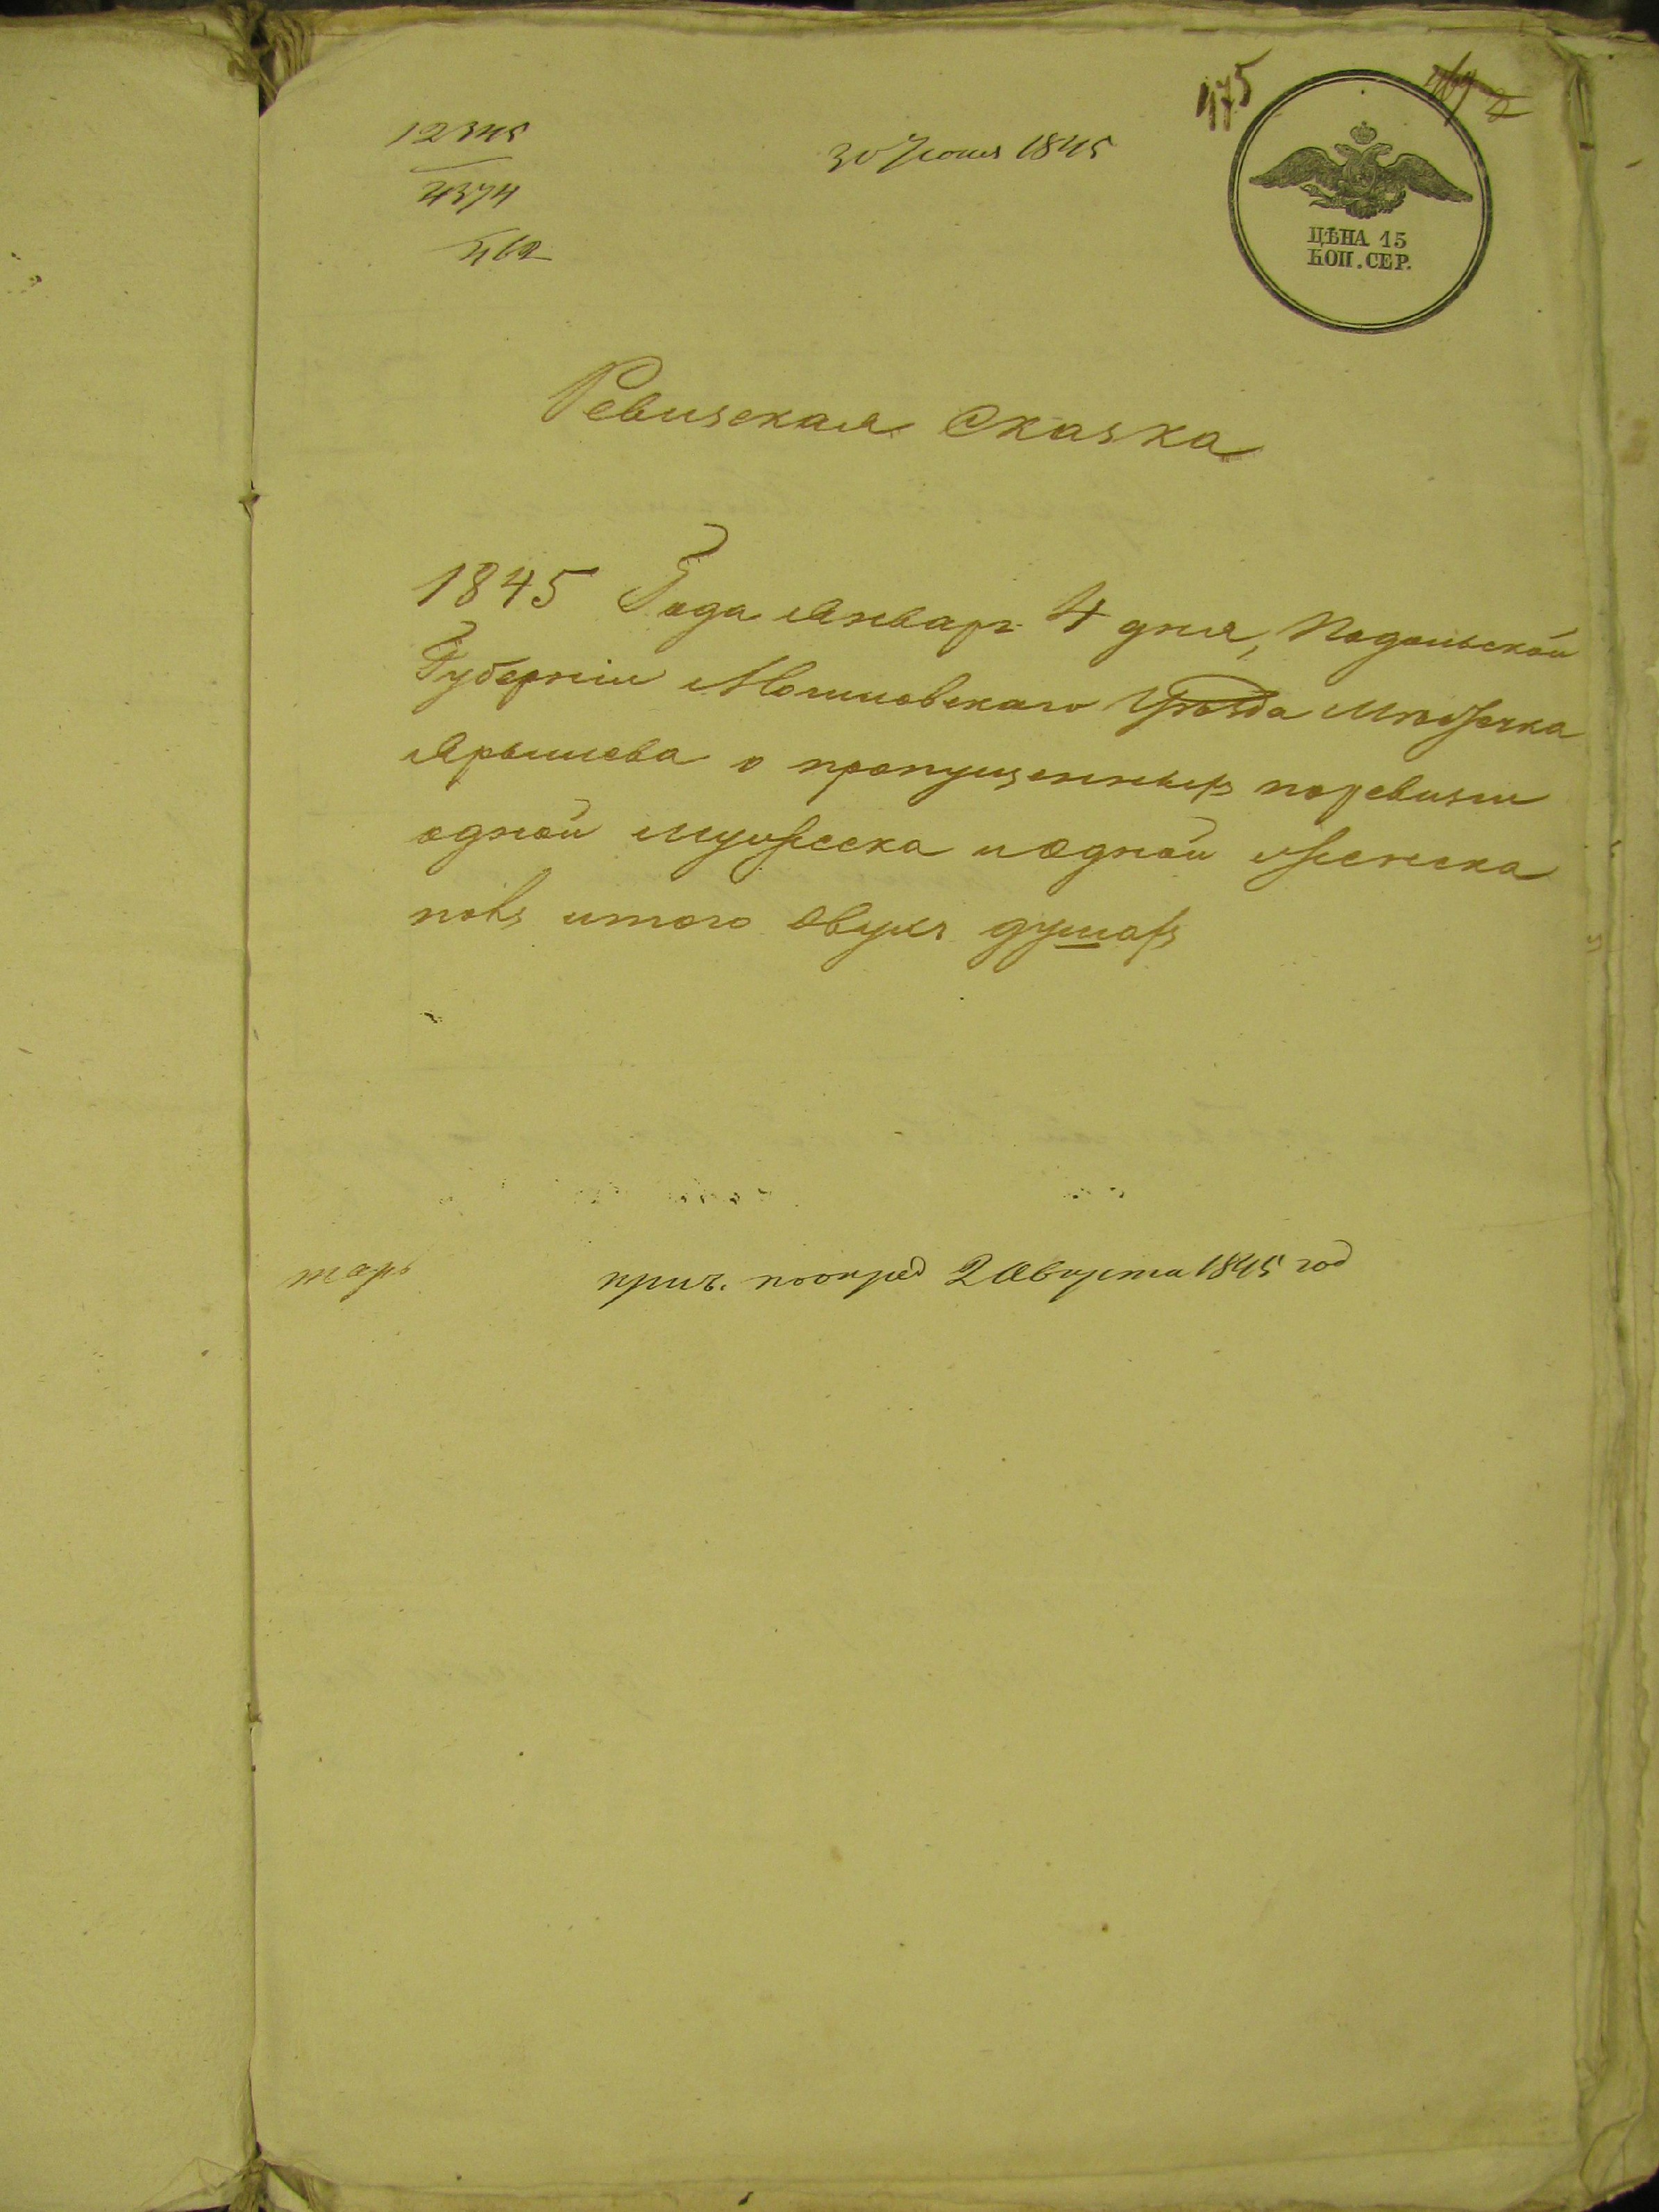 475
12345
30 Июня 1845
4374
562
ЦѢНА 15
КОП. СЕР.
Ревизская Сказка
1845 Года Январ 4 дня, Подольской
Губерніи Могиловскаго Уѣзда Мѣстечка
Ярышева о пропущенныхъ поревизіи
одной мужеска и одной женска
пола итого двухъ душахъ
тарь
2 Августа 1845 год